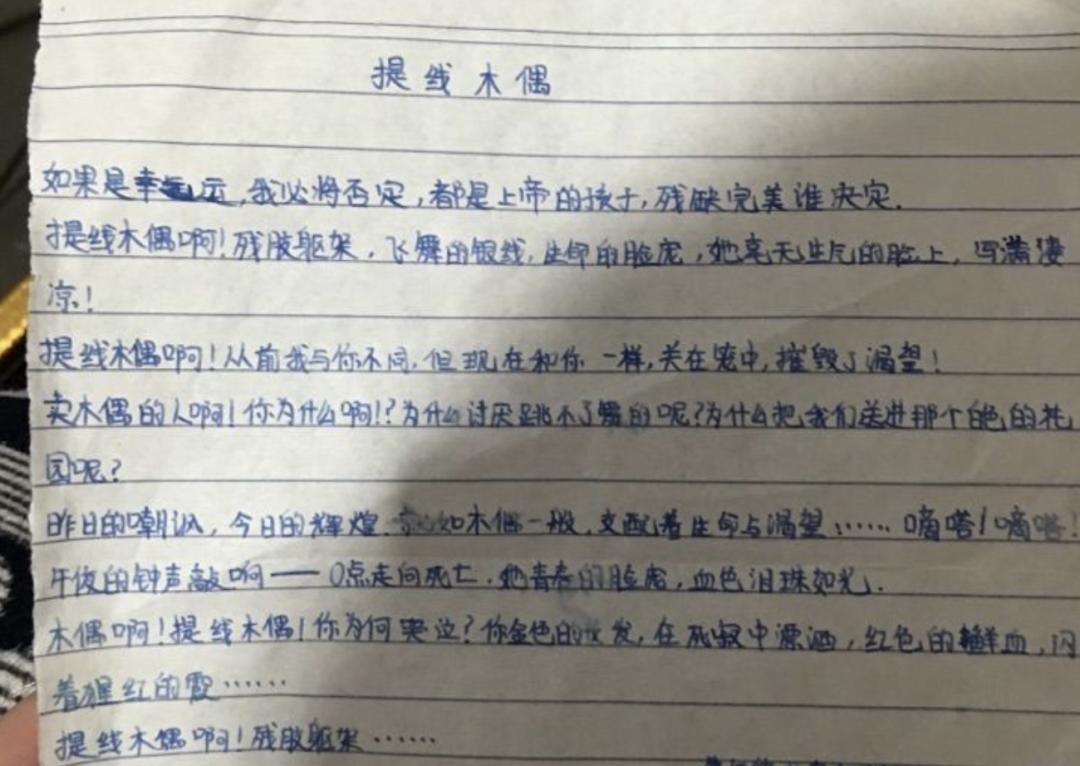 提线木偶
如果是幸运,我必将否定,都是上帝的孩子,残缺完美谁决定.
提线木偶啊!残肢躯架,飞舞的银线,生命的脸庞,她毫无生气的脸上,写满凄
凉!
提线木偶啊!从前我与你不同,但现在和你一样,关在笼中,摧毁了渴望!
卖木偶的人啊!你为什么啊!?为什么讨厌跳不了舞的呢?为什么把我们送进那个白色的花
园呢?
昨日的嘲讽,今日的辉煌.如木偶一般,支配着生命与渴望……嘀嗒!嘀嗒!
午夜的钟声敲响——0点走向死亡.她青春的脸庞,血色泪珠如光.
木偶啊!提线木偶!你为何哭泣?你金色的发,在死寂中漂洒,红色的鲜血,闪
着猩红的霞……
提线木偶啊!残肢躯架……